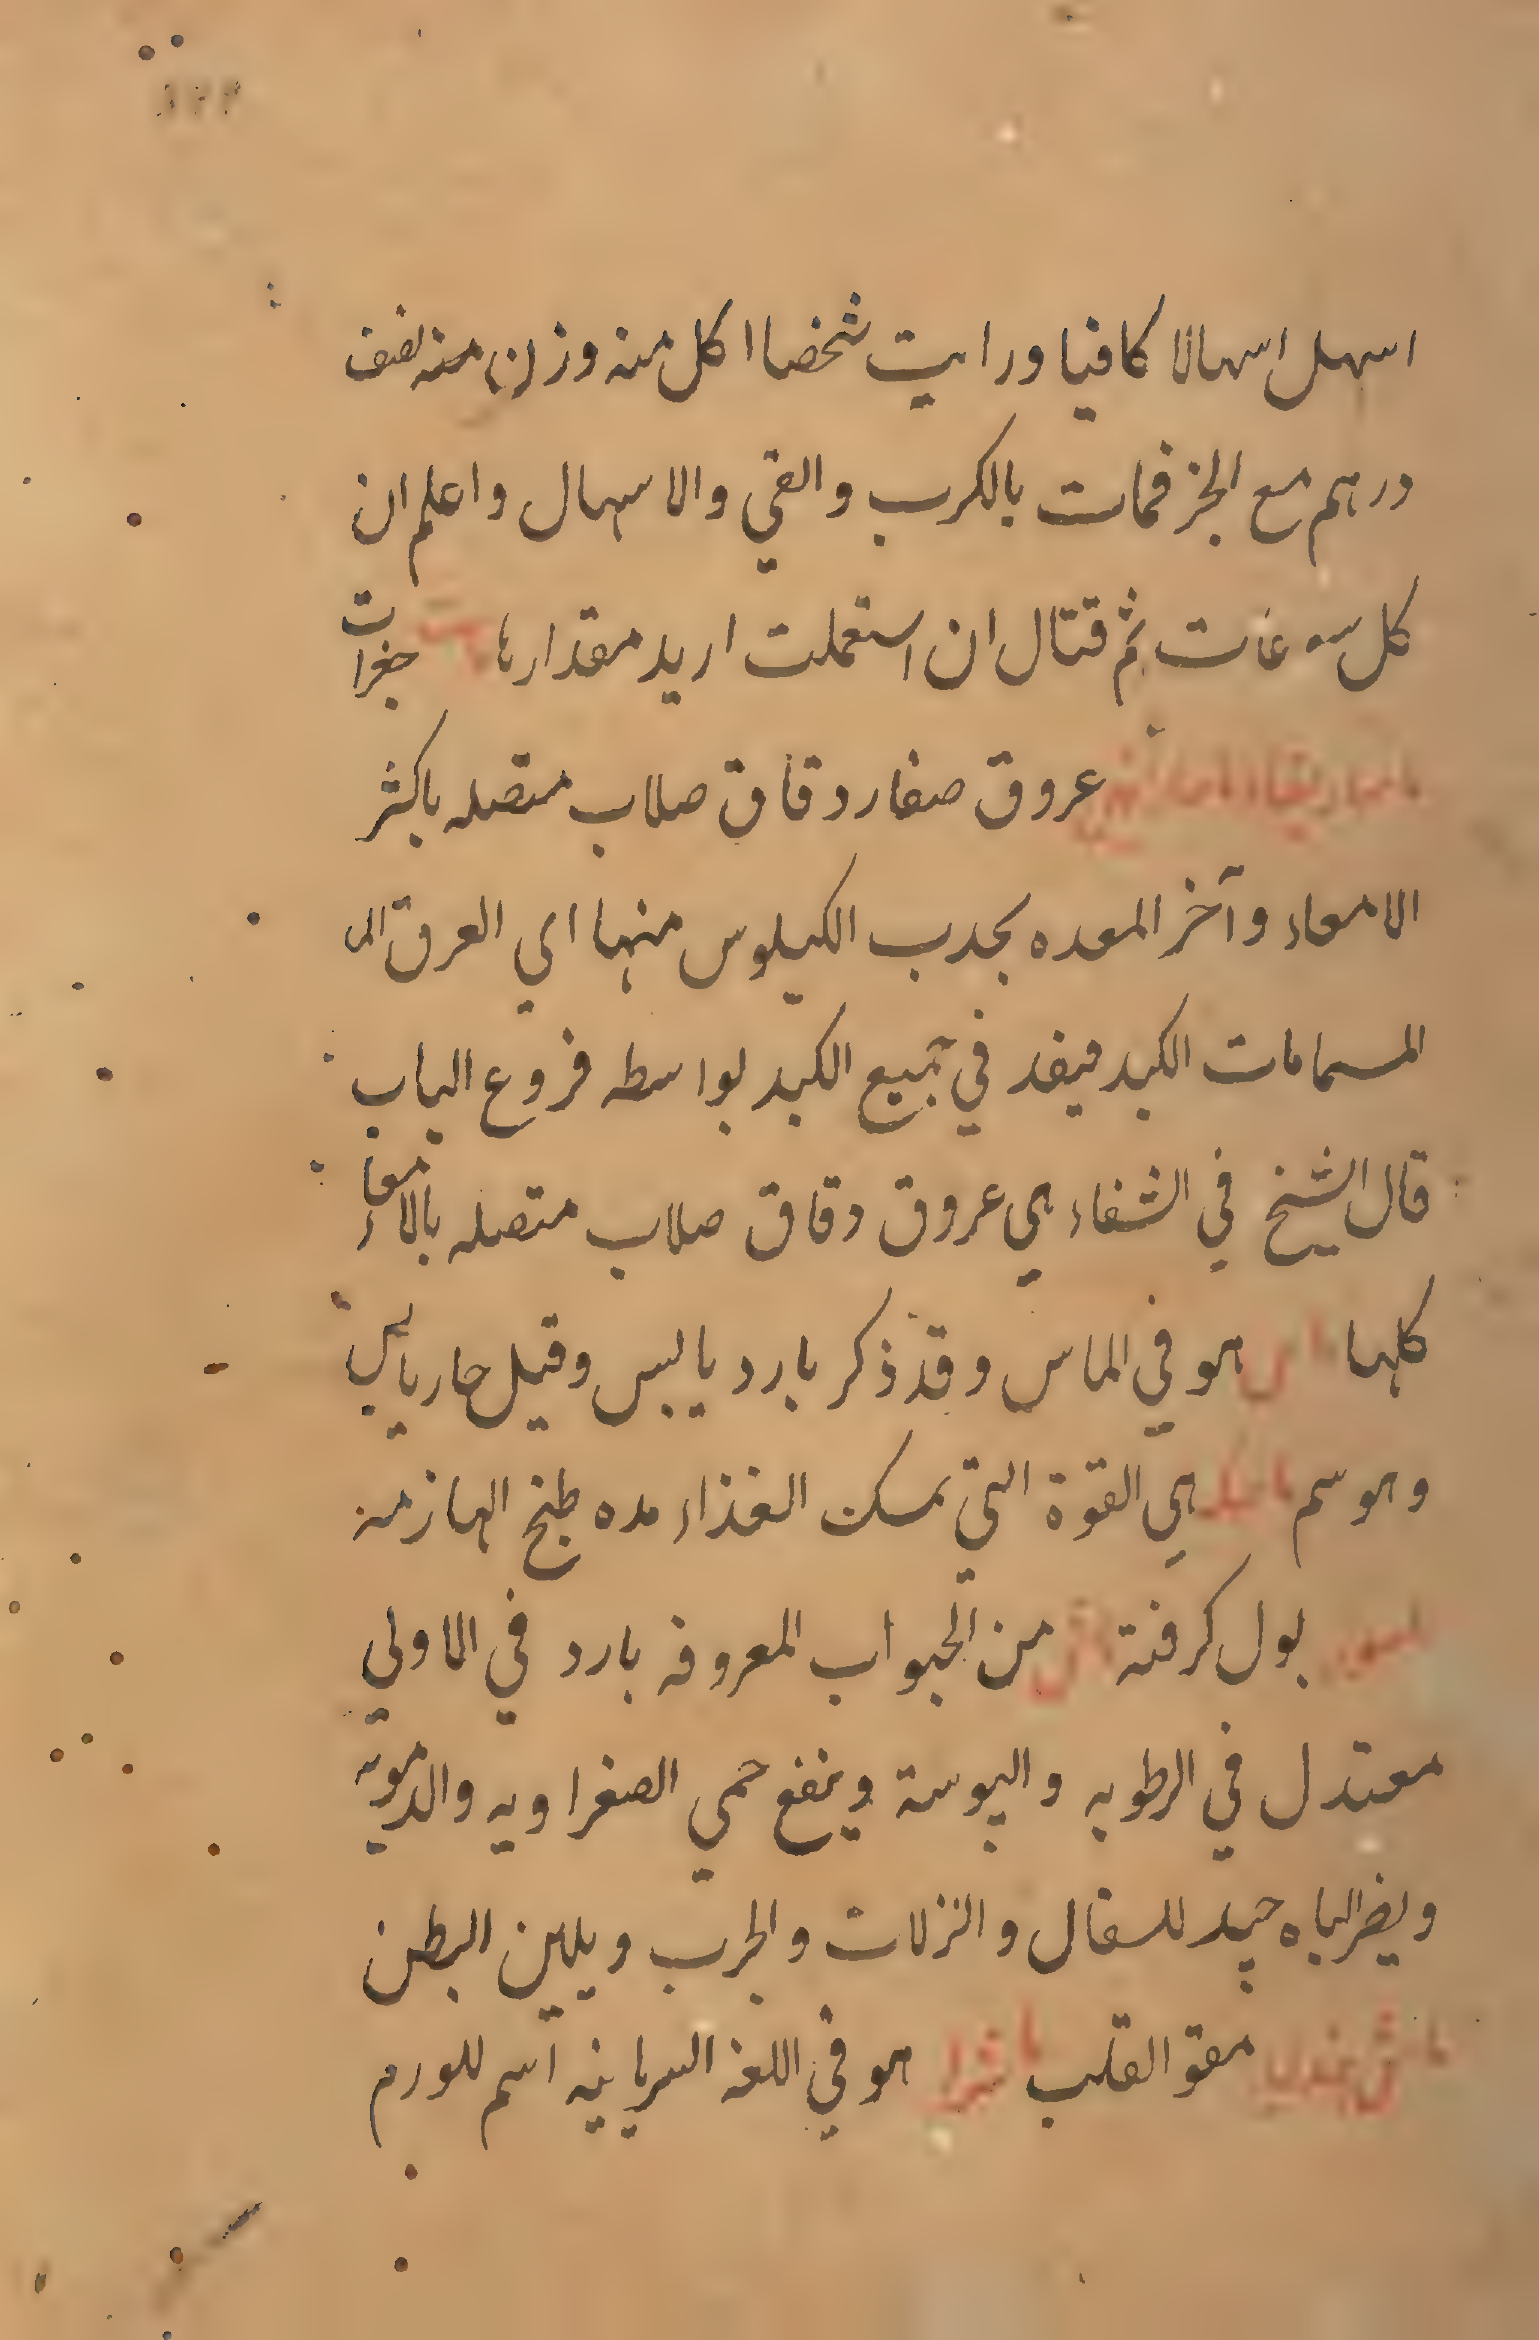 اسهل اسهالا كافيا ورايت شخصا اكل منه وزن منه نصف
درهم مع الجز فمات بالكرب والقي والاسهال واعلم ان
كل سوعات ثم قتال ان استعملت اريد مقدارها جغرات
عروق صغار دقاق صلاب متصله باكثر
الامعاء وآخر المعده بجدب الكيلوس منها اي العرق الى
المسمامات الكبد فيفد في جميع الكبد بواسطه فروع الباب
قال الشيخ في الشفاء هي عروق دقاق صلاب متصله بالامعاء
كلها هو في الماس وقد ذكر بارد يابس وقيل حار يابس
وهو سم ماسكه هي القوة التي تمسك الغذاء مده طبخ الهازمه
بول كرفتة ماش من الحبواب المعروفه بارد في الاولى
معتدل في الرطوبه واليبوسة وينفع حمي الصفراويه والدمويه
ويضر الباه جيد للسعال والنزلات والجرب ويلين البطن
ماش هندي مقو القلب ماشرا هو في اللغه السريانيه اسم للورم